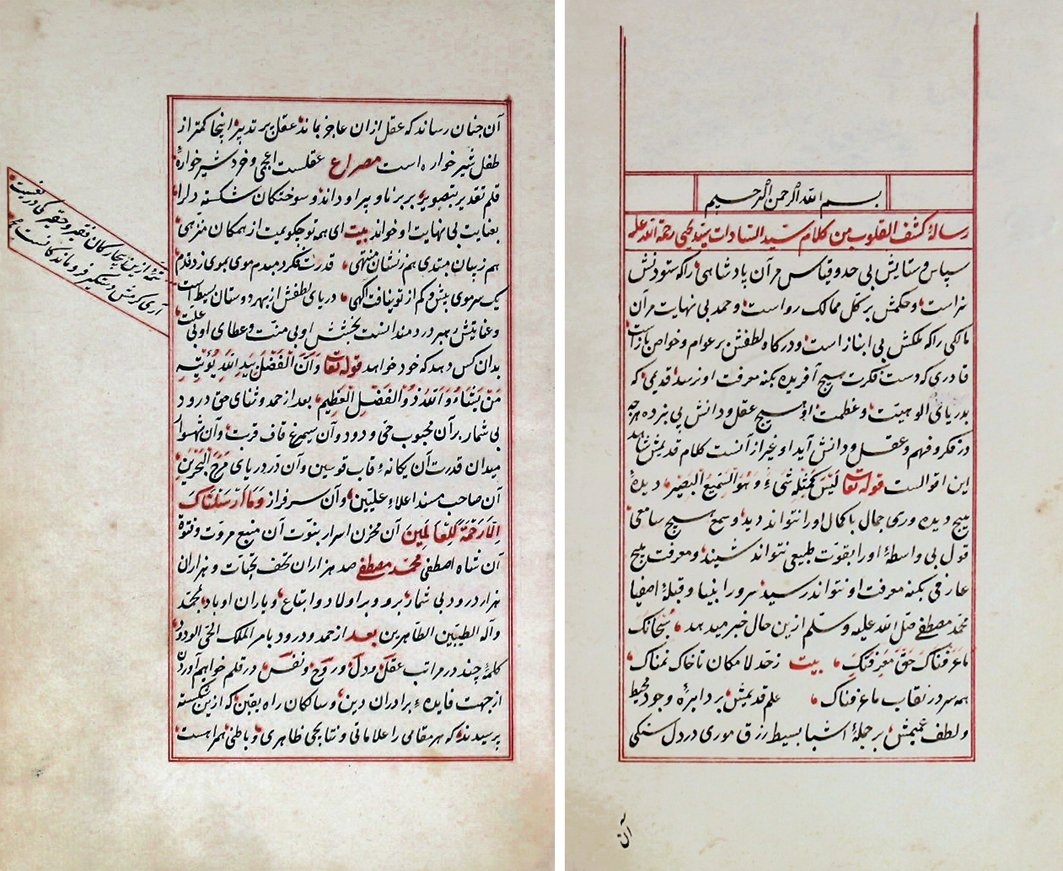 بسم الله الرحمن الرحیم
رسالهٔ کشف القلوب من کلام سید السادات سید یحیی رحمة الله علیه
سپاس و ستایش بی حد و قیاس مر آن پادشاهی را که ستودنش
سزاست و حکمش بر کل ممالک رواست و حمد بی نهایت مر آن
مالکی را که ملکش بی انباز است و درگاه لطفش بر عوام و خواص باز است
قادری که دست فکرت هیچ آفریده بکنه معرفت او نرسد قدیمی که
بدریای الوهیت و عظمت او هیچ عقل و دانش پی نبرده هرچه
در فکر و فهم و عقل و دانش آید او غیر از آنست کلام قدیمش شاهد
این اقوالست قوله تعالی لیس کمثله شیء و هو السمیع البصیر دیدهٔ
هیچ دیده وری جمال با کمال او را نتواند دید و سمع هیچ سامعی
قول بی واسطهٔ او را بقوت طبیعی نتواند شنید و معرفت هیچ
عارفی بکنه معرفت او نتواند رسید سرور انبیا و قبلهٔ اصفیا
محمد مصطفی صلی الله علیه و سلم ازین حال خبر میدهد سبحانک
ما عرفناک حق معرفتک بیت ز حد لامکان تا خاک نمناک
همه سر در نقاب ما عرفناک علم قدیمش بر دایرهٔ وجود محیط
و لطف عمیمش بر جملهٔ اشیا بسیط رزق موری در دل سنگی
آن
آن چنان رساند که عقل از آن عاجز بماند عقل پر تدبیر اینجا کمتر از
طفل شیر خواره است مصراع عقلست اعجمی و خرد شیر خواره
قلم تقدیر بتصویر بر برنا و پیر او داند و سوختگان شکسته دل را
بعنایت بی نهایت او خواند بیت ای همه تو حکومیت از همکان منزهی
هم ز بیان مبتدی هم ز نشان منتهی قدرت فکرد میدم موی بموی زد قلم
یک سر موی بیش و کم از تو نیافت آگهی دریای لطفش از بهر دوستان بسیط است
و عنایتش رهبر دردمندانست بخشش او بی منت و عطای او بی علت
بدان کس دهد که خود خواهد قوله تعالی و ان الفضل بید الله یؤتیه
من یشاء و الله ذو الفضل العظیم بعد از حمد و ثنای حق درود
بی شمار بر آن محبوب حی ودود و آن سیمرغ قاف قربت و آن شهسوار
میدان قدرت آن یکانهٔ قاب قوسین و آن در دریای مرج البحرین
آن صاحب مسند اعلاء علیین و آن سرفراز و ما ارسلناک
الا رحمة للعالمین آن مخزن اسرار نبوت آن منبع مروت و فتوة
آن شاه اصطفی محمد مصطفی صد هزاران تحف تحیات و هزاران
هزار درود بی شمار برو و بر اولاد و اتباع و یاران او باد محمد
و آله الطیبین الطاهرین بعد از حمد و درود بامر الملک الحی الودود
کلمهٔ چند در مراتب عقل و دل و روح و نفس در قلم خواهم آوردن
از جهت فایدهء برادران دین و سالکان راه یقین که ازین شکسته
پرسیدند که هر مقامی را علاماتی و نتایجی ظاهری و باطنی همراهست